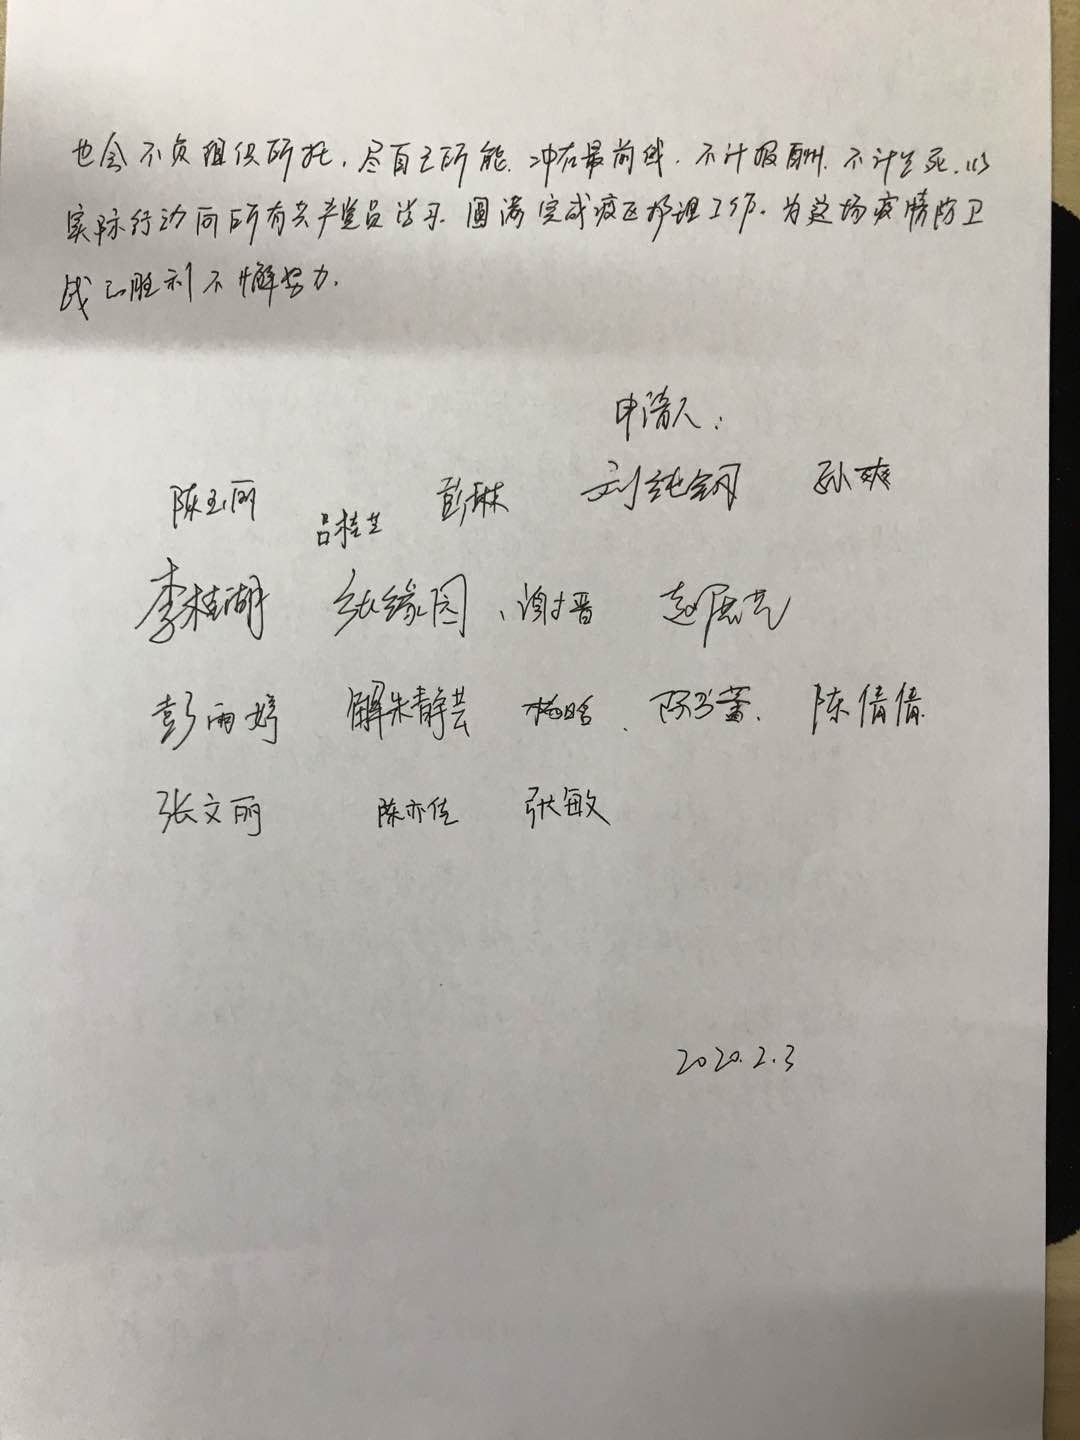 也会不负组织所托，尽自己所能，冲在最前线，不计报酬，不计生死，以
实际行动向所有共产党员学习，圆满完成疫区护理工作。为这场疫情防卫
战的胜利不懈努力。
申请人：
陈玉丽 吕桂芝 彭琳 刘纯钢 孙爽
李桂湖 张缘园 谢晋
彭雨婷 解朱静芸 陈倩倩
张文丽 陈亦佳 张敏
2020.2.3